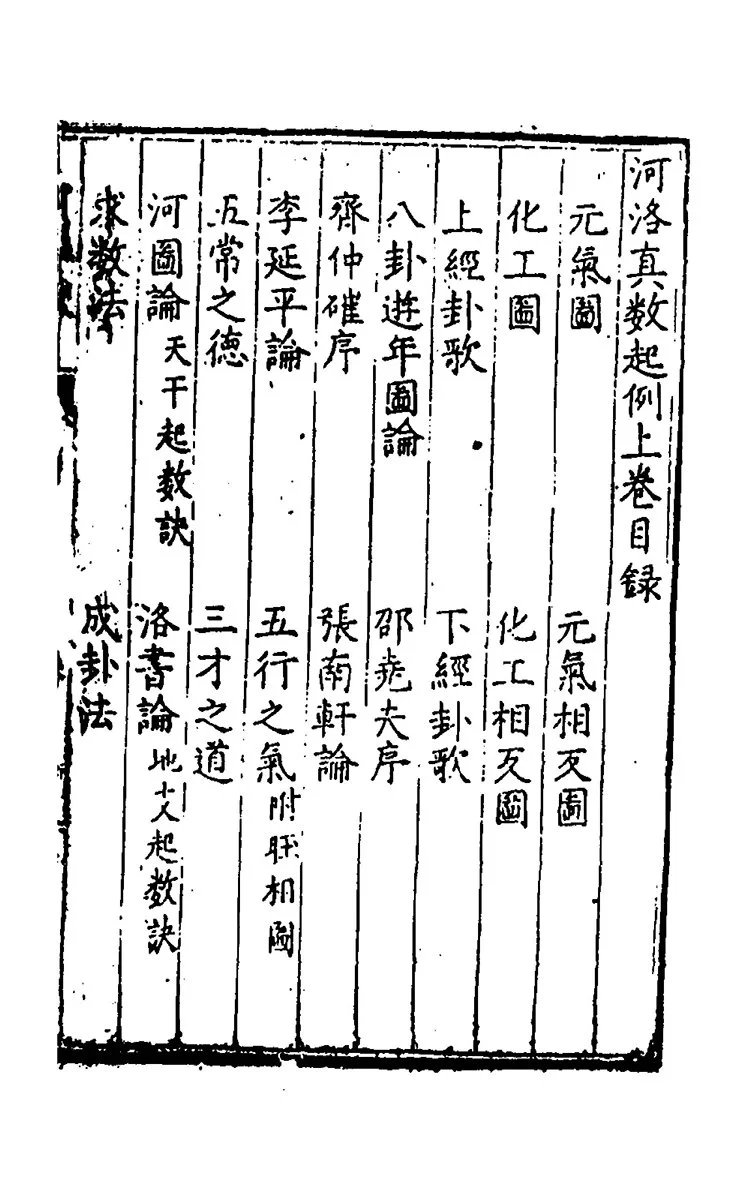 河洛真数起例上卷目録
元氣圖 元氣相互圖
化工圖 化工相互圖
上經卦歌 下經卦歌
八卦遊年圖論 邵堯夫序
齊仲碓序 張南軒論
李延平論 五行之氣 附旺相圖
五常之德 三才之道
河圖論 天干起数訣 洛書論 地支起数訣
求数法 成卦法